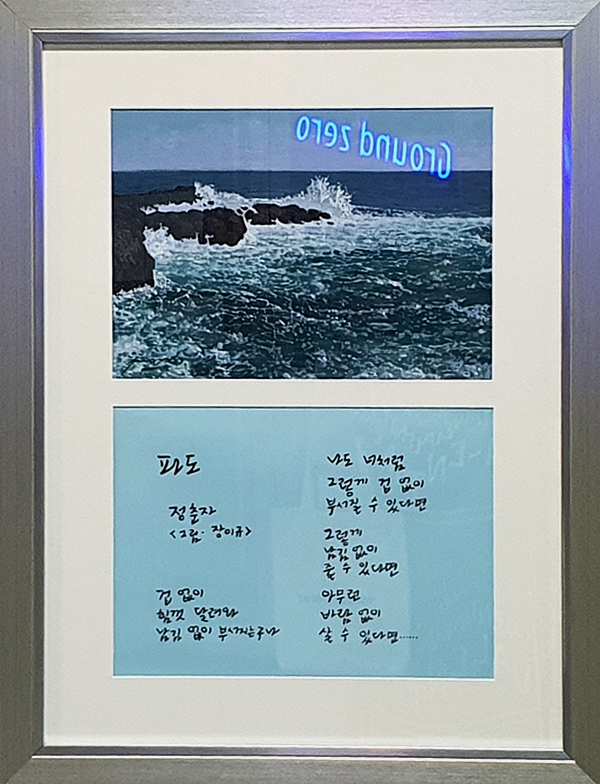 Ground zero
파도
정춘자
<그림·장이규>
겁 없이
힘껏 달려와
남김 없이 부서지는구나
나도 너처럼
그렇게 겁 없이
부서질 수 있다면
그렇게
남김 없이
줄 수 있다면
아무런
바람 없이
살 수 있다면......